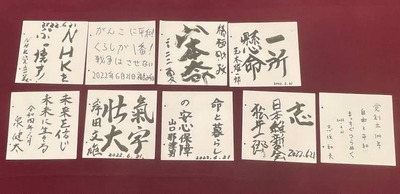 2022.6.21
NHKを
ぶっ壊す!
がんこに平和
くらしが1番!
戦争はさせない
2022年6月21日
一所
懸命
玉木雄一郎
2022.6.21
未来を信じ
未来に生きる
令和四年六月
泉健太
氣宇
壮大
岸田文雄
2022.6.21
命と暮らし
の安心保障
山口那津男
2022.6.21
志
日本維新の会
松井一郎
2022.6.21
自由と平和
志位和夫